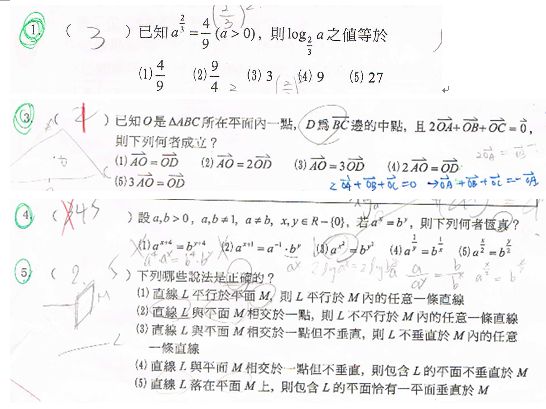 1. ( 3 ) 已知 a^{2/3} = 4/9 (a > 0)，則 log_{2/3} a 之值等於
(1) 4/9 (2) 9/4 (3) 3 (4) 9 (5) 27
3. ( ) 已知 O 是 ΔABC 所在平面內一點，D 為 BC 邊的中點，且 2OA+OB+OC = 0，
則下列何者成立？
(1) AO = OD (2) AO = 2OD (3) AO = 3OD (4) 2AO = OD
(5) 3AO = OD
2OA+OB+OC=0
4. ( 345 ) 設 a,b > 0，a,b ≠ 1，a ≠ b，x,y ∈ R − {0}，若 a^x = b^y，則下列何者恆真？
(1) a^{x+4} = b^{y+4} (2) a^{x+1} = a^{-1}·b^y (3) a^{x²} = b^{y²} (4) a^{1/y} = b^{1/x} (5) a^{x/2} = b^{y/2}
5. ( 2. 5 ) 下列哪些說法是正確的？
(1) 直線 L 平行於平面 M，則 L 平行於 M 內的任意一條直線
(2) 直線 L 與平面 M 相交於一點，則 L 不平行於 M 內的任意一條直線
(3) 直線 L 與平面 M 相交於一點但不垂直，則 L 不垂直於 M 內的任意
一條直線
(4) 直線 L 與平面 M 相交於一點但不垂直，則包含 L 的平面不垂直於 M
(5) 直線 L 落在平面 M 上，則包含 L 的平面恰有一平面垂直於 M